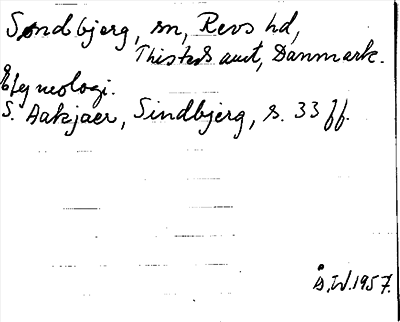 Søndbjerg, sn, Revs hd,
Thisted amt, Danmark.
Etymologi.
S. Aakjaer, Sindbjerg, s. 33 ff.
Å.W. 1957.